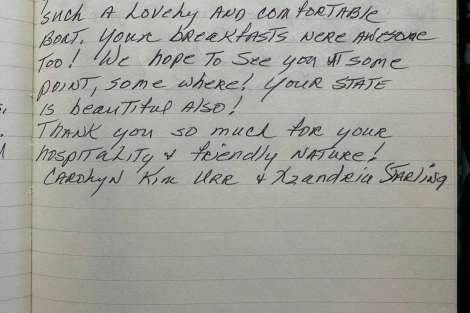 such A Lovely AND comfortable
BOAT. Your breakfasts were Awesome
Too! We hope to see you at some
point, some where! your STATE
is beautiful Also!
Thank you so much for your
hospitality & friendly NATURE!
CAROLYN Kim URR & Xzandria STARLING